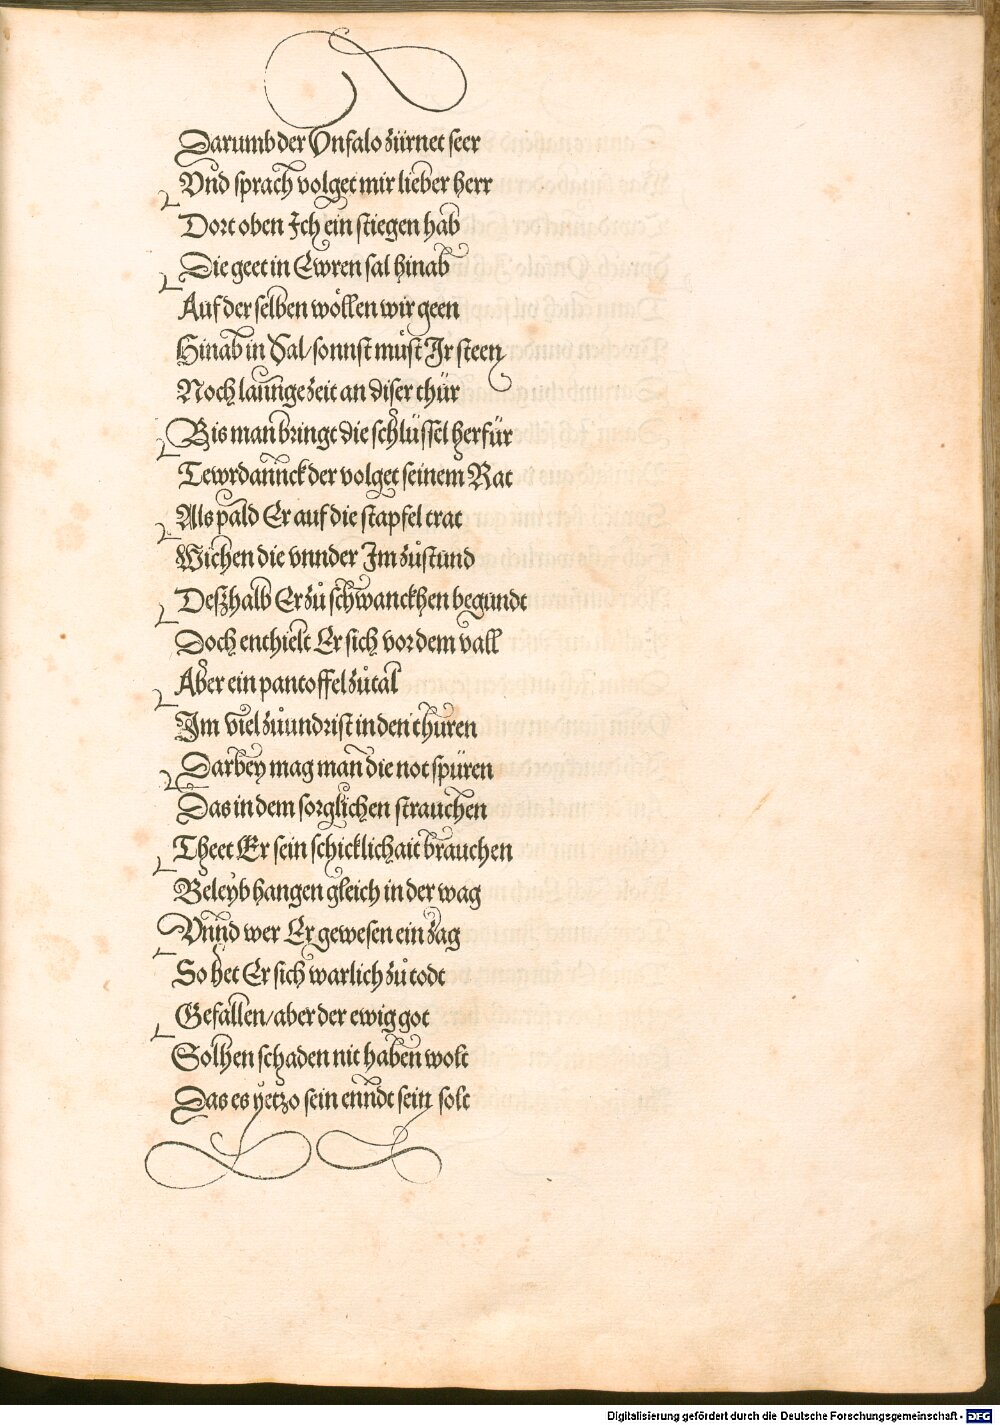 Darumb der Unfalo zürnet seer
Vnd sprach volget mir lieber herr
Dort oben Ich ein stiegen hab
Die geet in Ewren sal hinab
Auf der selben wöllen wir geen
Hinab in Sal/ sonnst müst Ir steen
Noch launge zeit an diser thür
Bis man bringt die schlüssel herfür
Tewrdannck der volget seinem Rat
Als pald Er auf die stapfel trat
Wichen die vnnder Im zůstund
Deszhalb Er zů schwanckhen begundt
Doch enthielt Er sich vor dem vall
Aber ein pantoffel zůtal
Im viel zůundrist in den thuren
Darbey mag man die not spüren
Das in dem sorglichen strauchen
Theet Er sein schicklichait brauchen
Beleyb hangen gleich in der wag
Vnnd wer Er gewesen ein zag
So het Er sich warlich zů todt
Gefallen/ aber der ewig got
Solhen schaden nit haben wolt
Das es yetzo sein enndt sein solt
Digitalisierung gefördert durch die Deutsche Forschungsgemeinschaft - DFG